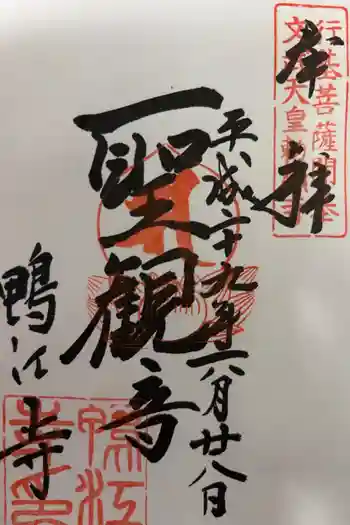 奉拝
行基菩薩開基
文天皇勅
平成二十九年八月廿八日
聖観音
鴨江寺
鴨江寺印